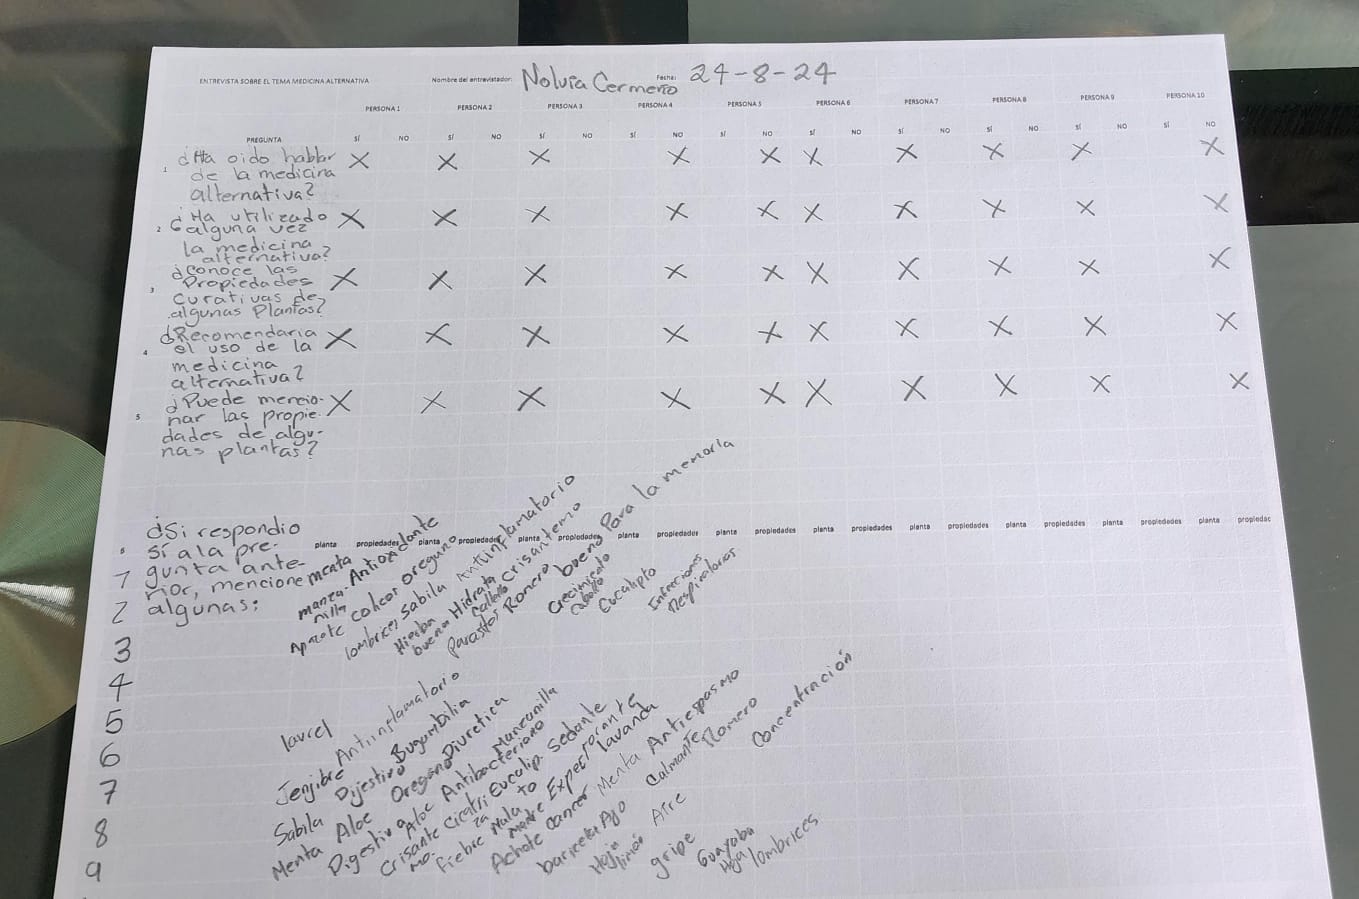 ENTREVISTA SOBRE EL TEMA MEDICINA ALTERNATIVA Nombre del entrevistador: Nolvia Cermeño Fecha: 24-8-24
PERSONA 1 PERSONA 2 PERSONA 3 PERSONA 4 PERSONA 5 PERSONA 6 PERSONA 7 PERSONA 8 PERSONA 9 PERSONA 10
PREGUNTA SÍ NO SÍ NO SÍ NO SÍ NO SÍ NO SÍ NO SÍ NO SÍ NO SÍ NO SÍ NO
1 ¿Ha oido hablar X X X X X X X X X X
de la medicina
alternativa?
2 ¿Ha utilizado X X X X X X X X X X
alguna vez
la medicina
alternativa?
3 ¿Conoce las X X X X X X X X X X
Propiedades
curativas de
algunas Plantas?
4 ¿Recomendaria X X X X X X X X X X
el uso de la
medicina
alternativa?
5 ¿Puede mencio- X X X X X X X X X X
nar las propie-
dades de algu-
nas plantas?
6 ¿Si respondio
sí a la pre-
gunta ante-
rior, mencione
algunas:
planta propiedades planta propiedades planta propiedades planta propiedades planta propiedades planta propiedades planta propiedades planta propiedades planta propiedades planta propiedades
1
2
3
4
5
6
7
8
9
menta
manza-
nilla
Antioxidante
Apazote
oregano
lombrices
Sabila
Antiinflamatorio
Hierba
buena
Hidrata
Crisantemo
Parasitos
Romero
bueno Para la memoria
Crecimiento
Cabello
Eucalipto
Infecciones
Respiratorias
laurel
Antiinflamatorio
Jenjibre
Dijestivo
Bugambilia
Sabila
Oregano
Diuretica
Menta
Aloe
Antibacteriano
Manzanilla
Digestiva
Aloe
Cicatriza
Eucalipto
Sedante
Crisantemo
Fiebre
Mala
madre
Expectorante
lavanda
Achote
cancer
Menta
Antiespasmo
Ajo
Calmante
Romero
Concentración
Hoja
limón
Aire
gripe
Guayaba
Hoja
lombrices